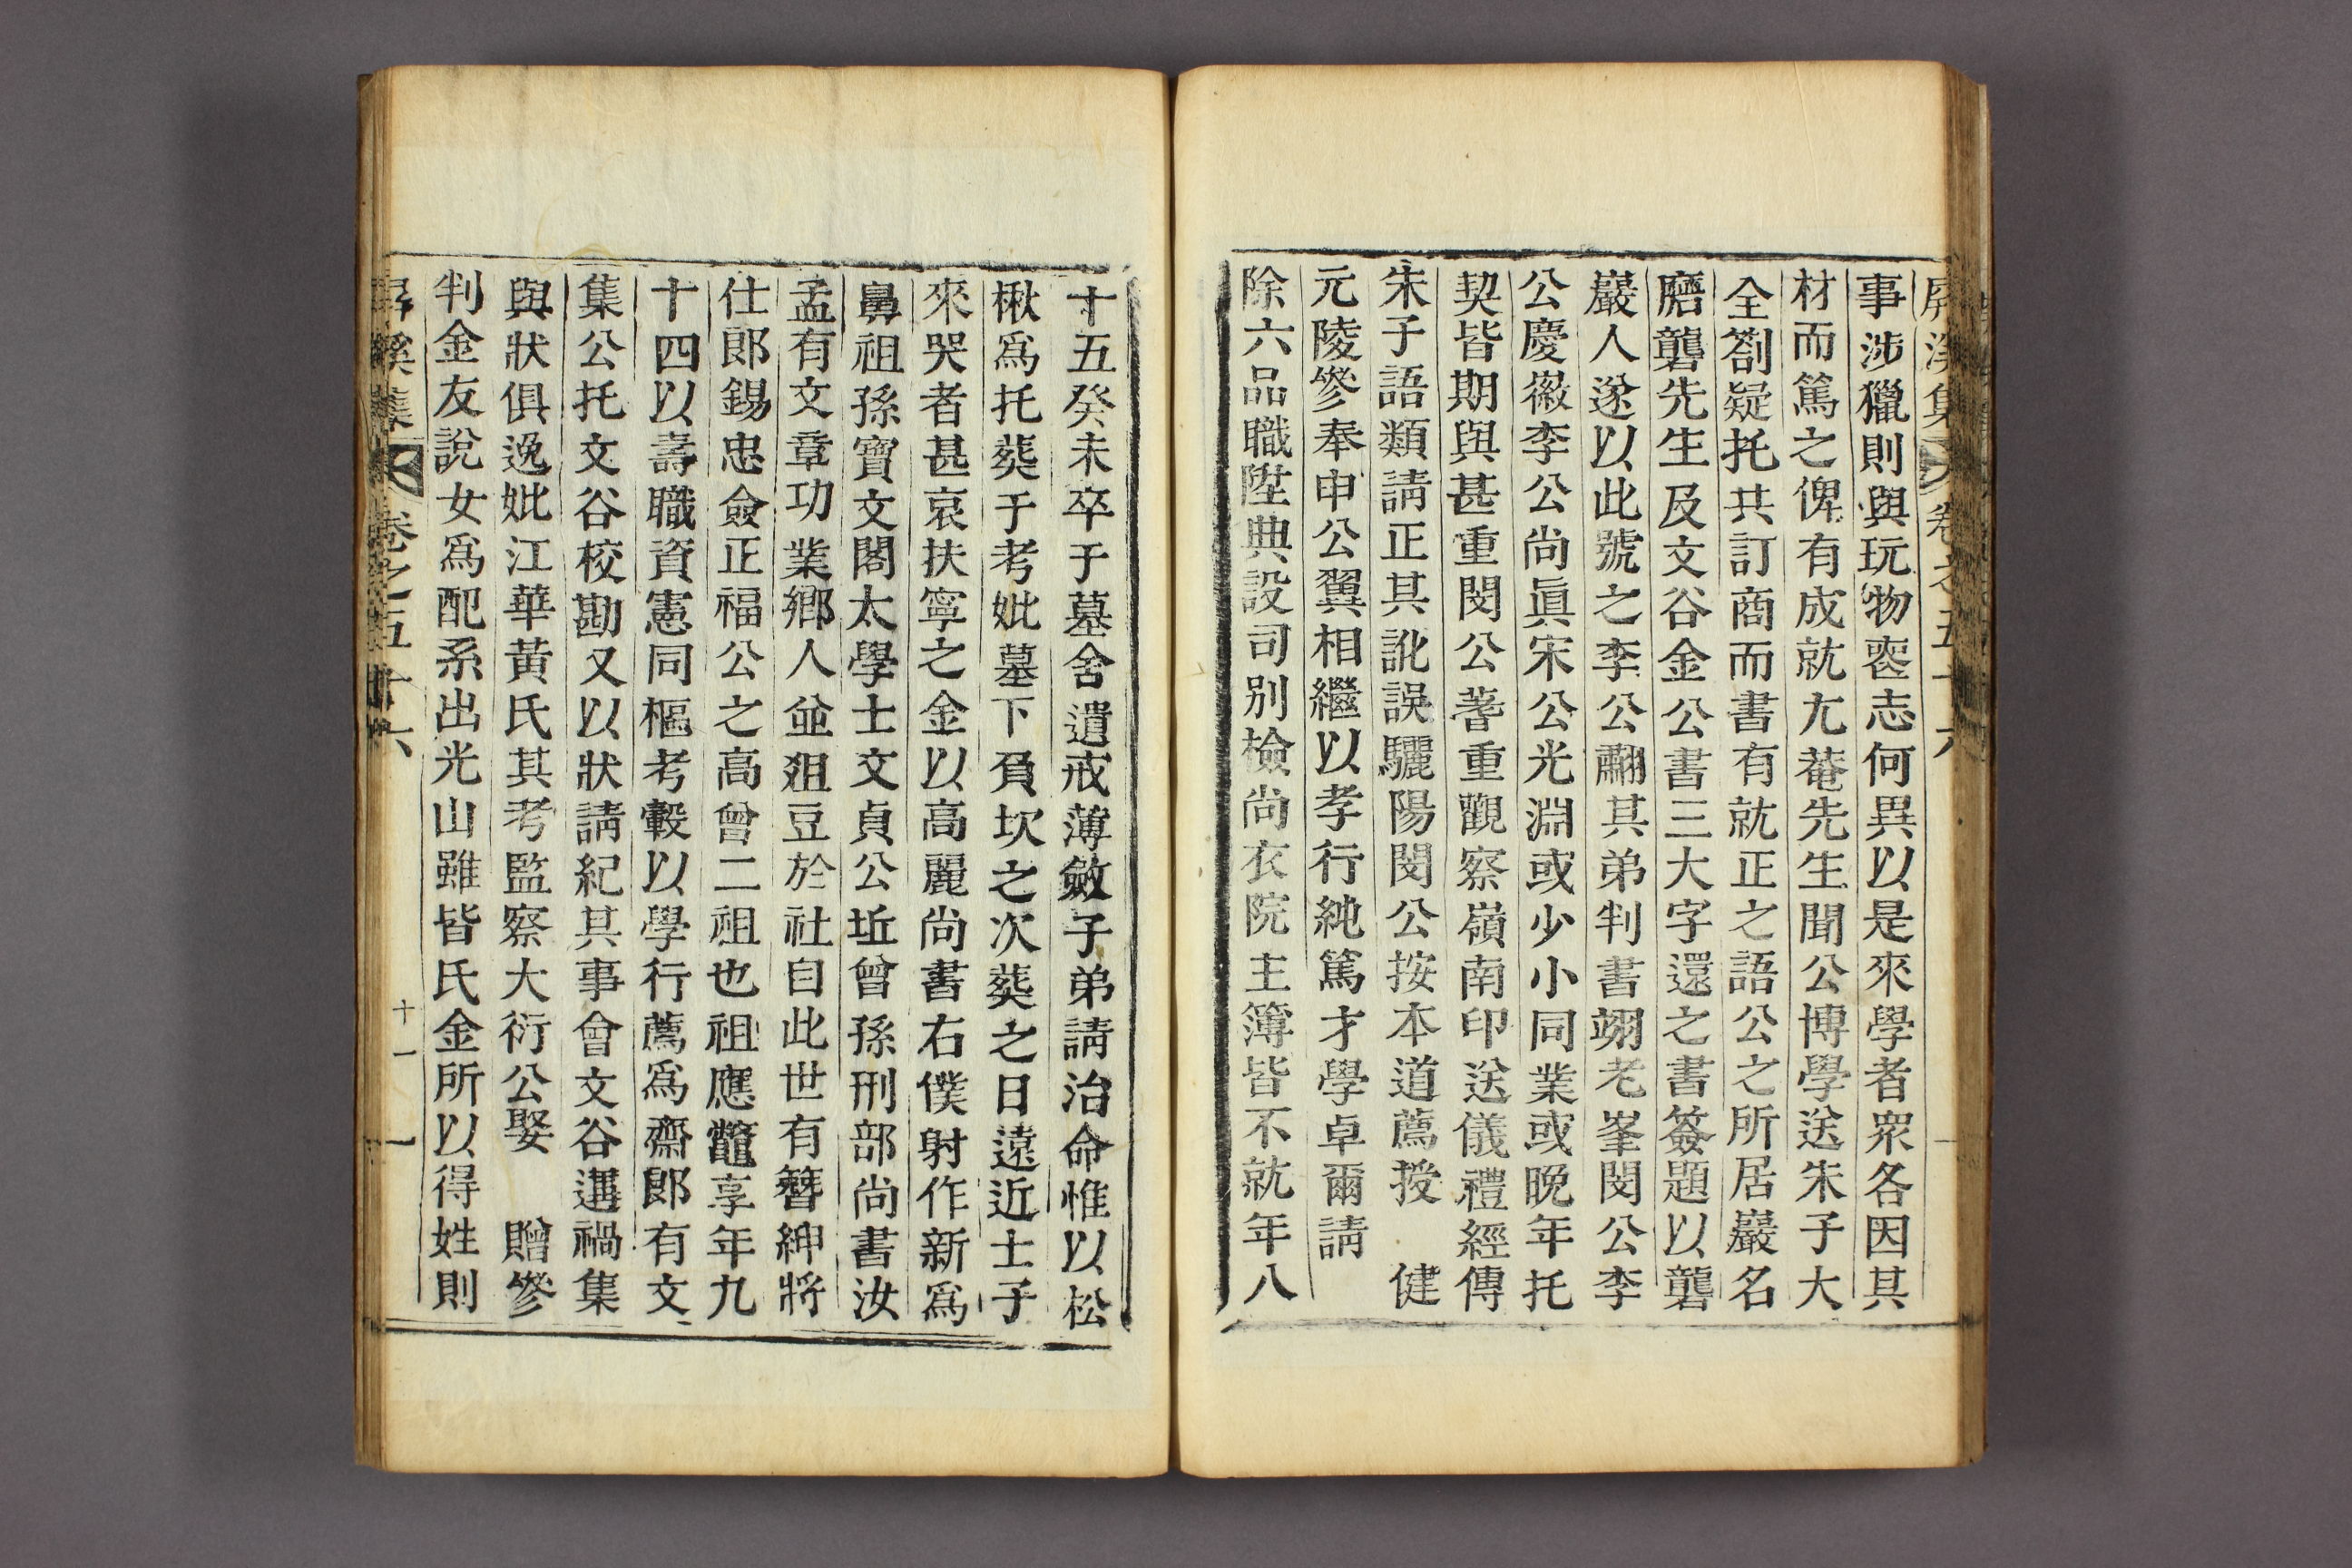 屛溪集 卷之五十六
事涉獵則與玩物喪志何異以是來學者衆各因其
材而篤之俾有成就尤菴先生聞公博學送朱子大
全箚疑托共訂商而書有就正之語公之所居巖名
磨礱先生及文谷金公書三大字還之書簽題以礱
巖人遂以此號之李公翽其弟判書翊老峯閔公李
公慶徽李公尚眞宋公光淵或少小同業或晩年托
契皆期與甚重閔公蓍重觀察嶺南印送儀禮經傳
朱子語類請正其訛誤驪陽閔公按本道薦授 健
元陵參奉申公翼相繼以孝行純篤才學卓爾請
除六品職陞典設司别檢尚衣院主簿皆不就年八
十五癸未卒于墓舍遺戒薄斂子弟請治命惟以松
楸爲托葬于考妣墓下負坎之次葬之日遠近士子
來哭者甚哀扶寧之金以高麗尚書右僕射作新爲
鼻祖孫寶文閣太學士文貞公坵曾孫刑部尚書汝
孟有文章功業鄉人並俎豆於社自此世有簪紳將
仕郎錫忠僉正福公之高曾二祖也祖應鼈享年九
十四以壽職資憲同樞考轂以學行薦爲齋郎有文
集公托文谷校勘又以狀請紀其事會文谷遘禍集
與狀俱逸妣江華黃氏其考監察大衍公娶 贈參
判金友說女爲配系出光山雖皆氏金所以得姓則
屛溪集 卷之五十六 十一